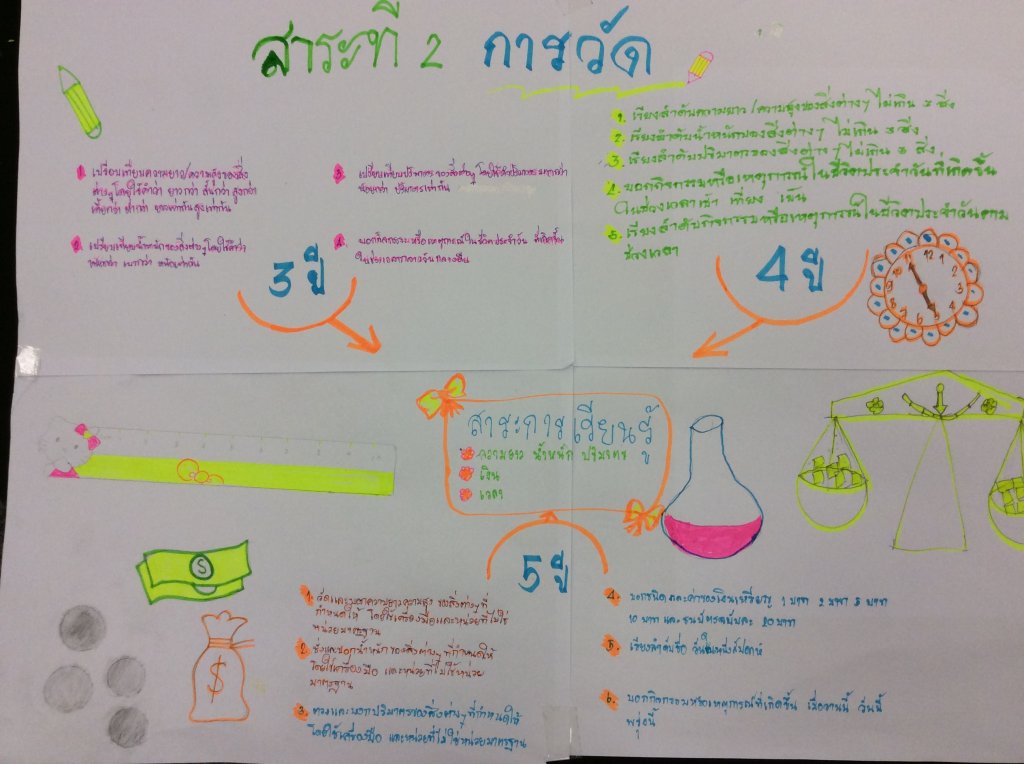 สาระที่ 2 การวัด
1. เปรียบเทียบความยาว/ความสูงของสิ่ง
ต่างๆโดยใช้คำว่า ยาวกว่า สั้นกว่า สูงกว่า
เตี้ยกว่า ต่ำกว่า ยาวเท่ากัน สูงเท่ากัน
2. เปรียบเทียบน้ำหนักของสิ่งต่างๆโดยใช้คำว่า
หนักกว่า เบากว่า หนักเท่ากัน
3. เปรียบเทียบปริมาตร ของสิ่งต่างๆ โดยใช้คำปริมาตร มากกว่า
น้อยกว่า ปริมาตรเท่ากัน
4. บอกกิจกรรมหรือเหตุการณ์ในชีวิตประจำวัน ที่เกิดขึ้น
ในช่วงเวลากลางวัน กลางคืน
3 ปี
1. เรียงลำดับความยาว/ความสูงของสิ่งต่างๆ ไม่เกิน 3 สิ่ง
2. เรียงลำดับน้ำหนักของสิ่งต่างๆ ไม่เกิน 3 สิ่ง
3. เรียงลำดับปริมาตรของสิ่งต่างๆ ไม่เกิน 3 สิ่ง
4. บอกกิจกรรมหรือเหตุการณ์ในชีวิตประจำวันที่เกิดขึ้น
ในช่วงเวลาเช้า เที่ยง เย็น
5. เรียงลำดับกิจกรรมหรือเหตุการณ์ในชีวิตประจำวันตาม
ช่วงเวลา
4 ปี
12 1 2 3 4 5 6 7 8 9 10 11
สาระการเรียนรู้
ความยาว น้ำหนัก ปริมาตร
เงิน
เวลา
5 ปี
1. วัดและบอกความยาวความสูง ของสิ่งต่างๆที่
กำหนดให้ โดยใช้เครื่องมือและหน่วยที่ไม่ใช่
หน่วยมาตรฐาน
2. ชั่งและบอกน้ำหนัก ของสิ่งต่างๆ ที่กำหนดให้
โดยใช้เครื่องมือ และหน่วยที่ไม่ใช่หน่วย
มาตรฐาน
3. ตวงและบอกปริมาตรของสิ่งต่างๆที่กำหนดให้
โดยใช้เครื่องมือ และหน่วยที่ไม่ใช่หน่วยมาตรฐาน
4. บอกชนิดและค่าของเงินเหรียญ 1 บาท 2 บาท 5 บาท
10 บาท และ ธนบัตรฉบับละ 20 บาท
5. เรียงลำดับชื่อ วันในหนึ่งสัปดาห์
6. บอกกิจกรรมหรือเหตุการณ์ที่เกิดขึ้น เมื่อวานนี้ วันนี้
พรุ่งนี้
S
$